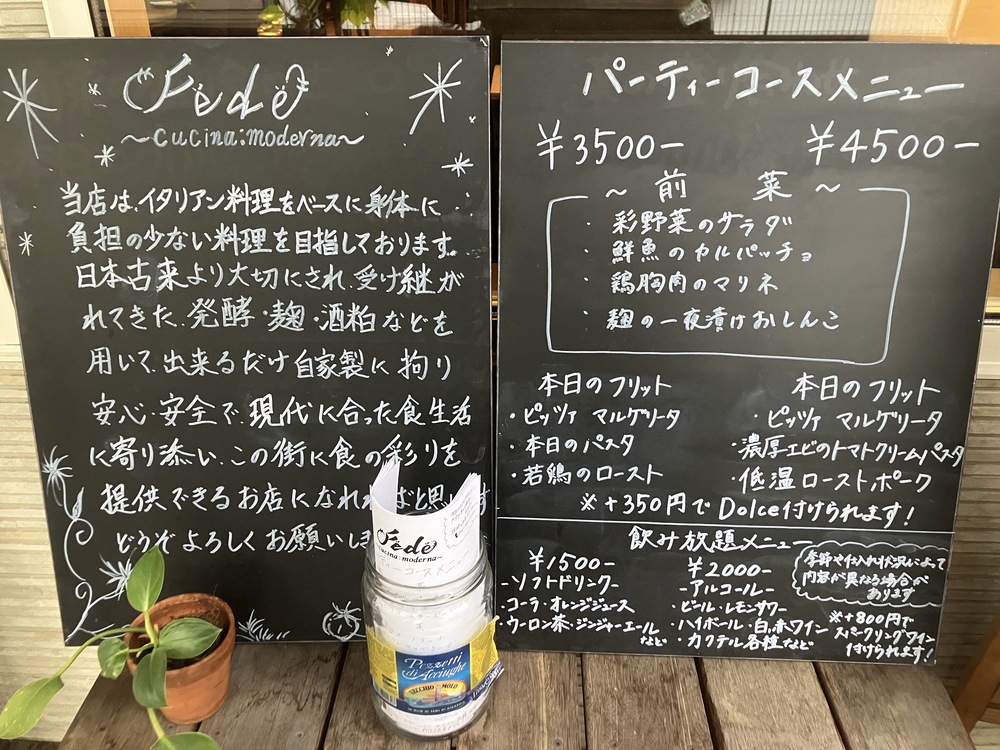 Fedë
~cucina:moderna~
当店は、イタリアン料理をベースに身体に
負担の少ない料理を目指しております。
日本古来より大切にされ、受け継が
れてきた、発酵・麹・酒粕などを
用いて、出来るだけ自家製に拘り
安心・安全で、現代に合った食生活
に寄り添い、この街に食の彩りを
提供できるお店になれればと思います
どうぞよろしくお願いしま
パーティーコースメニュー
¥3500-
¥4500-
~ 前 菜 ~
・彩野菜のサラダ
・鮮魚のカルパッチョ
・鶏胸肉のマリネ
・麹の一夜漬けおしんこ
本日のフリット
・ピッツァ マルゲリータ
・本日のパスタ
・若鶏のロースト
本日のフリット
・ピッツァ マルゲリータ
・濃厚エビのトマトクリームパスタ
低温ローストポーク
※+350円でDolce付けられます!
飲み放題メニュー
¥1500-
-ソフトドリンク-
・コーラ・オレンジジュース
・ウーロン茶・ジンジャーエール
など
¥2000-
-アルコール-
・ビール・レモンサワー
・ハイボール・白、赤ワイン
・カクテル各種など
季節や仕入れ状況によって
内容が異なる場合が
あります
※+800円で
スパークリングワイン
付けられます!
Fedë
cucina:moderna~
ティーコースメニュー
Pezzetti
di Acciughe
VECCHIO MOLO